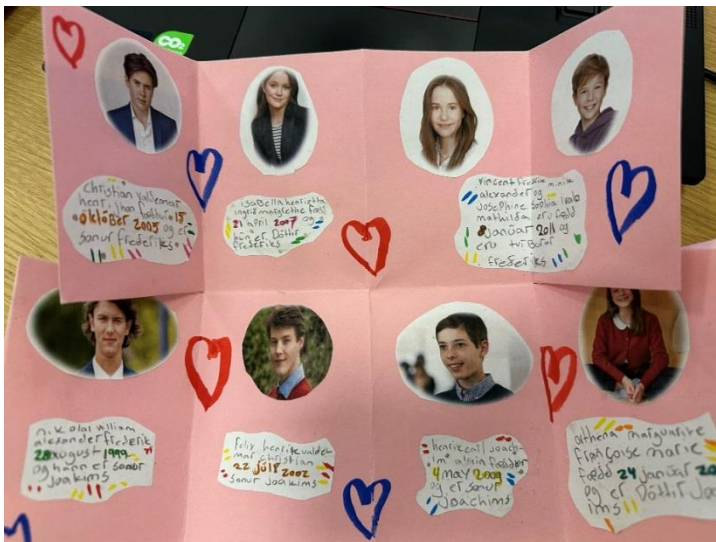 CO2
christian valdemar
henri jhon
15
október 2005 og er
sonur frederiks
isabella henrietta
ingrid margrethe fædd
21 april 2007 og
hún er Dóttir
frederiks
vincent fredrik minik
alexander og
Josephine Sophia Ivalo
mathilda eru fædd
8 janúar 2011 og
eru tvíburar
frederiks
nikolai william
alexander frederik
28 august 1999
og hann er sonur
Joakims
felix henrik valde-
mar christian
22 júlí 2002
sonur Joakims
henrik carl Joach-
im alain fæddur
4 may 2009
og er sonur
Joachims
athena marguerite
françoise marie
fædd 24 janúar
og er Dóttir Joa
ims